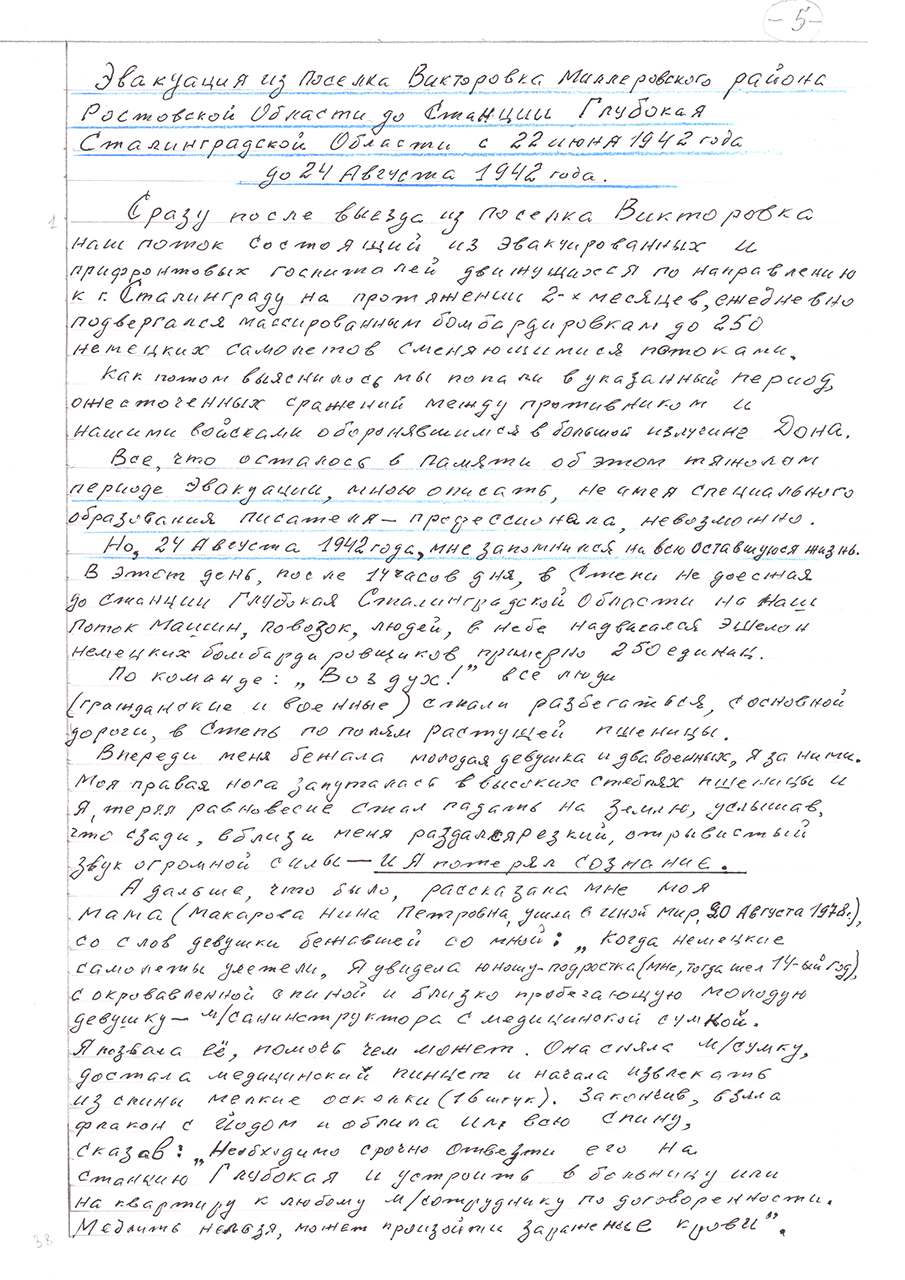 -5-
Эвакуация из поселка Викторовка Миллеровского района
Ростовской Области до Станции Глубокая
Сталинградской Области с 22 июня 1942 года
до 24 Августа 1942 года.
1
Сразу после выезда из поселка Викторовка
наш поток состоящий из эвакуированных и
прифронтовых госпиталей движущихся по направлению
к г. Сталинграду на протяжении 2-х месяцев, ежедневно
подвергался массированным бомбардировкам до 250
немецких самолетов сменяющимися потоками.
Как потом выяснилось мы попали в указанный период,
ожесточенных сражений между противником и
нашими войсками оборонявшимся в большой излучине Дона.
Все, что осталось в памяти об этом тяжолом
периоде эвакуации, мною описать, не имея специального
образования писателя – профессионала, невозможно.
Но, 24 Августа 1942 года, мне запомнился на всю оставшуюся жизнь.
В этот день, после 14 часов дня, в Степи не доезжая
до станции Глубокая Сталинградской Области на наш
поток машин, повозок, людей, в небе надвигался эшелон
немецких бомбардировщиков примерно 250 единиц.
По команде: „Воздух!" все люди
(гражданские и военные) стали разбегаться, с основной
дороги, в степь по полям растущей пшеницы.
Впереди меня бежала молодая девушка и два военных, я за ними.
Моя правая нога запуталась в высоких стеблях пшеницы и
я, теряя равновесие стал падать на землю, услышав,
что сзади, вблизи меня раздался резкий, отрывистый
звук огромной силы – и я потерял сознание.
А дальше, что было, рассказала мне моя
мама (Макарова Нина Петровна, ушла в иной мир, 20 Августа 1978г.),
со слов девушки бежавшей со мной: „Когда немецкие
самолеты улетели, я увидела юношу-подростка (мне, тогда шел 14-ый год),
с окровавленной спиной и близко пробегающую молодую
девушку – м/санинструктора с медицинской сумкой.
Я позвала её, помочь чем может. Она сняла м/сумку,
достала медицинский пинцет и начала извлекать
из спины мелкие осколки (16 штук). Закончив, взяла
флакон с йодом и облила им всю спину,
сказав: „Необходимо срочно отвезти его на
станцию Глубокая и устроить в больницу или
на квартиру к любому м/сотруднику по договоренности.
Медлить нельзя, может произойти заражение крови".
38